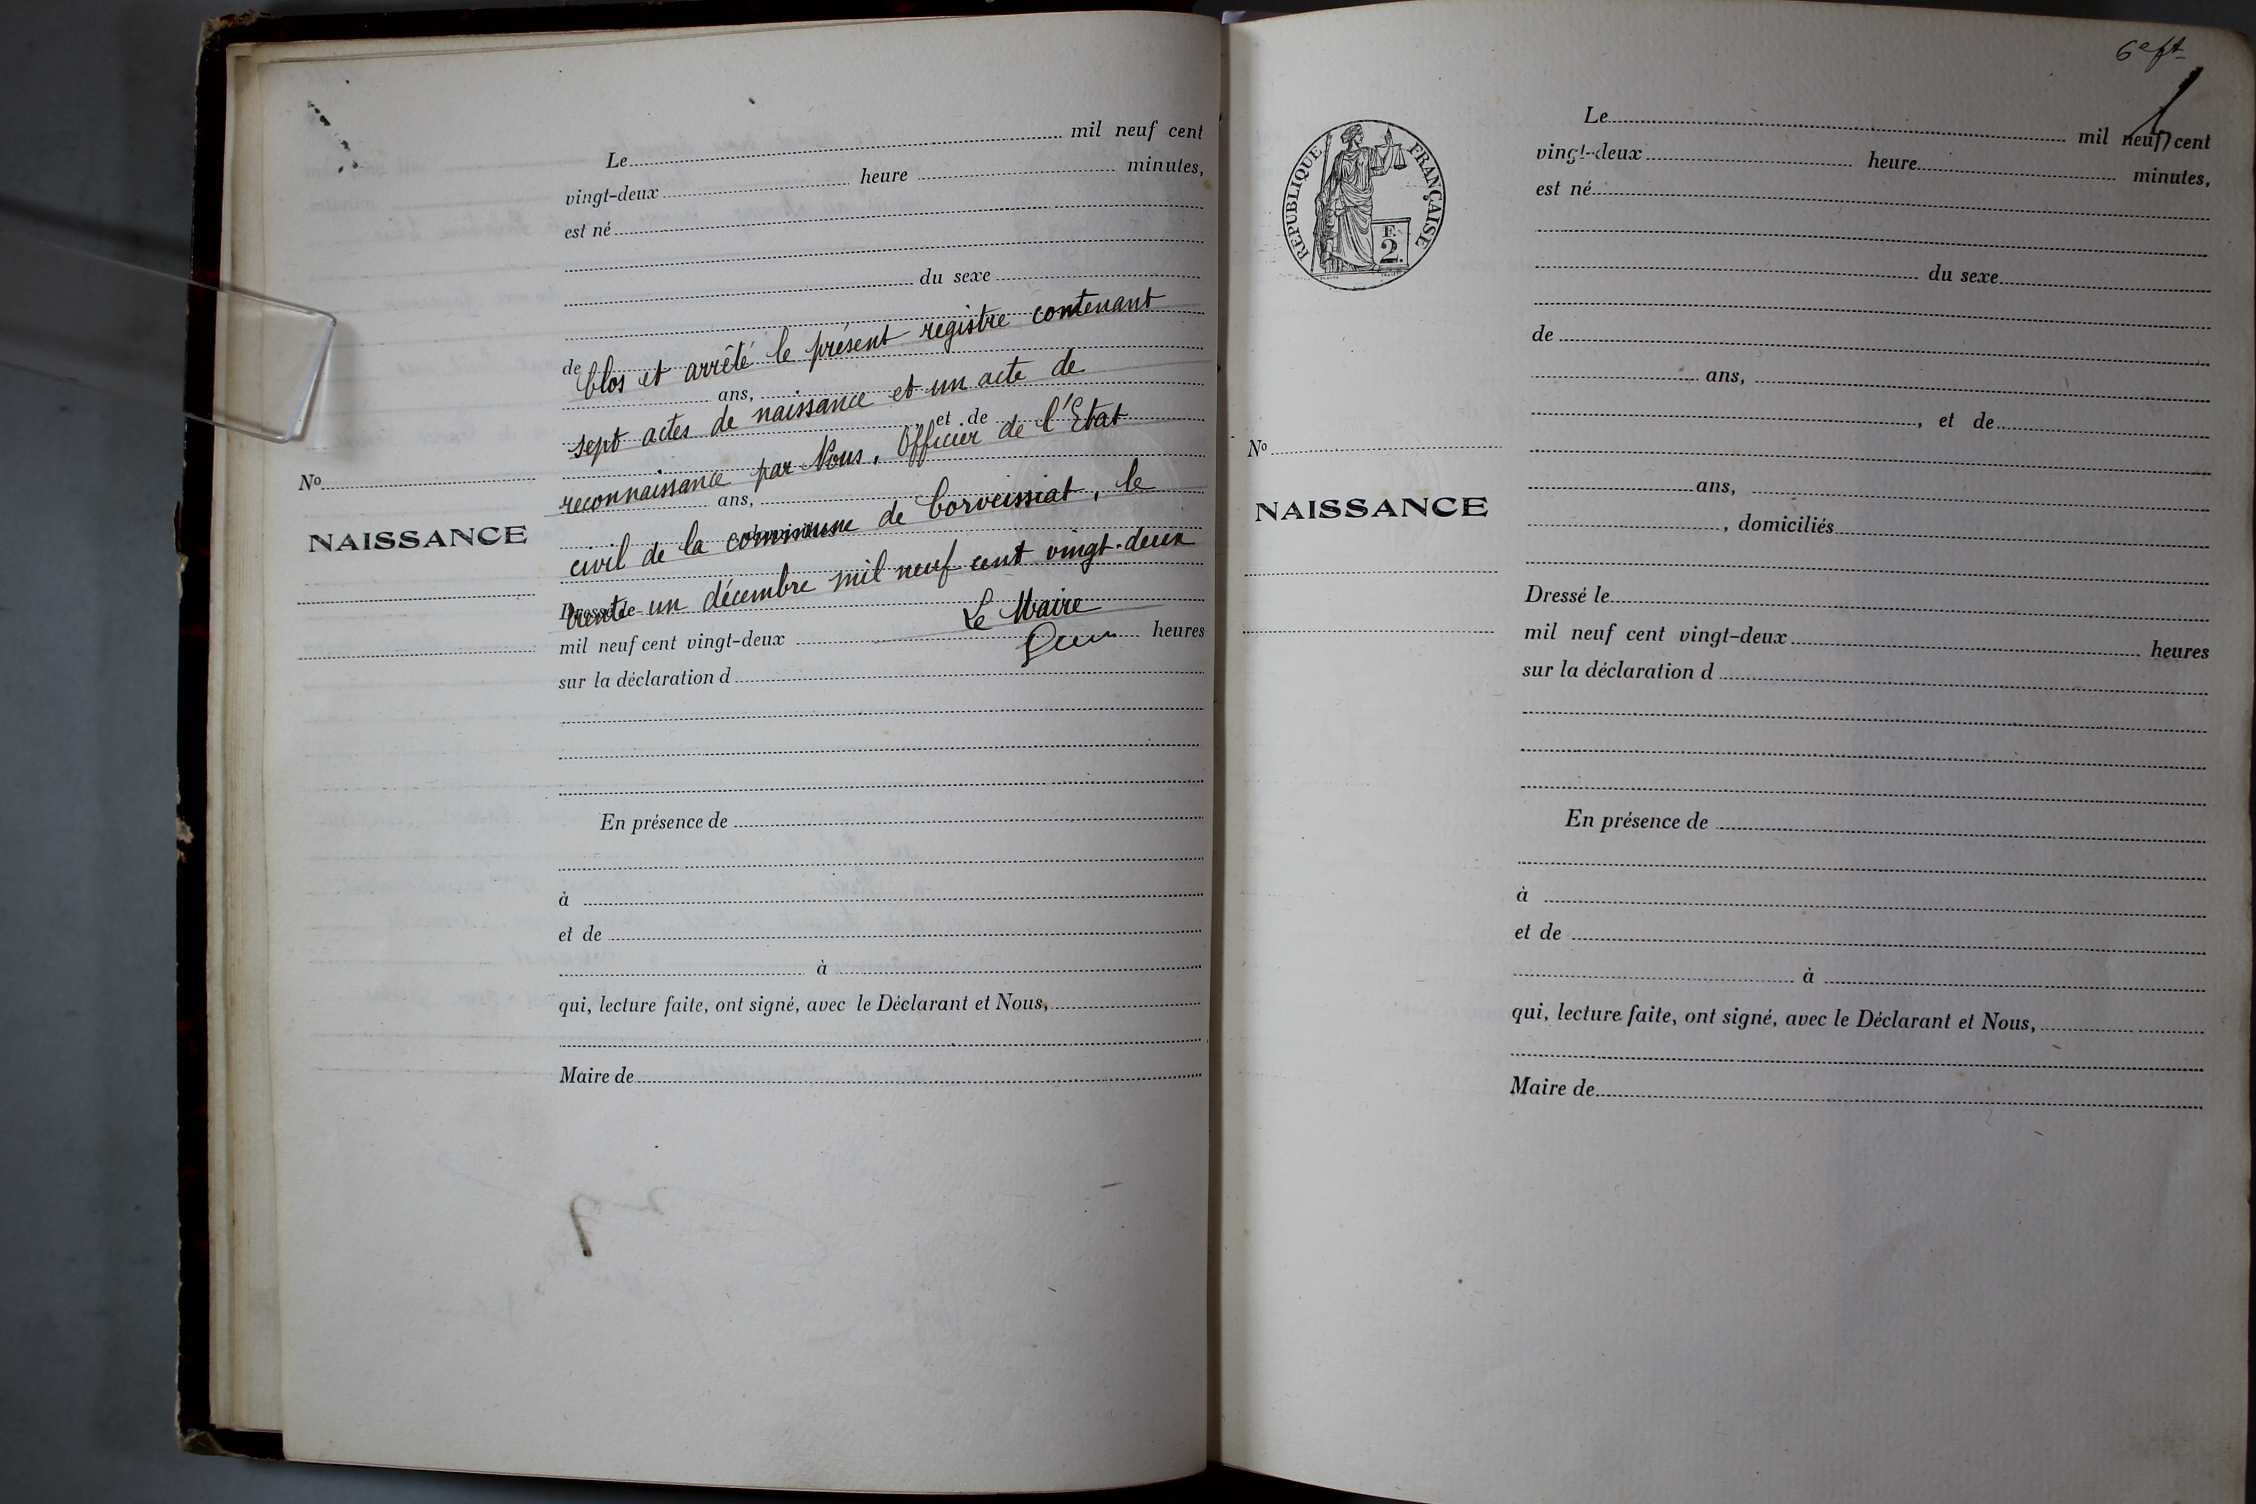 Le mil neuf cent
vingt-deux heure minutes,
est né
du sexe
de
Clos et arrêté le présent registre contenant
ans,
sept actes de naissance et un acte de
et de
reconnaissance par Nous, Officier de l'Etat
ans,
civil de la commune de Corveissiat, le
Dressé le
trente un décembre mil neuf cent vingt-deux
Le Maire
mil neuf cent vingt-deux heures
sur la déclaration d
En présence de
à
et de
à
qui, lecture faite, ont signé, avec le Déclarant et Nous,
Maire de
No
NAISSANCE
6e ft
RÉPUBLIQUE FRANÇAISE
F.
2.
No
NAISSANCE
Le mil neuf cent
vingt-deux heure minutes,
est né
du sexe
de
ans,
, et de
ans,
, domiciliés
Dressé le
mil neuf cent vingt-deux heures
sur la déclaration d
En présence de
à
et de
à
qui, lecture faite, ont signé, avec le Déclarant et Nous,
Maire de